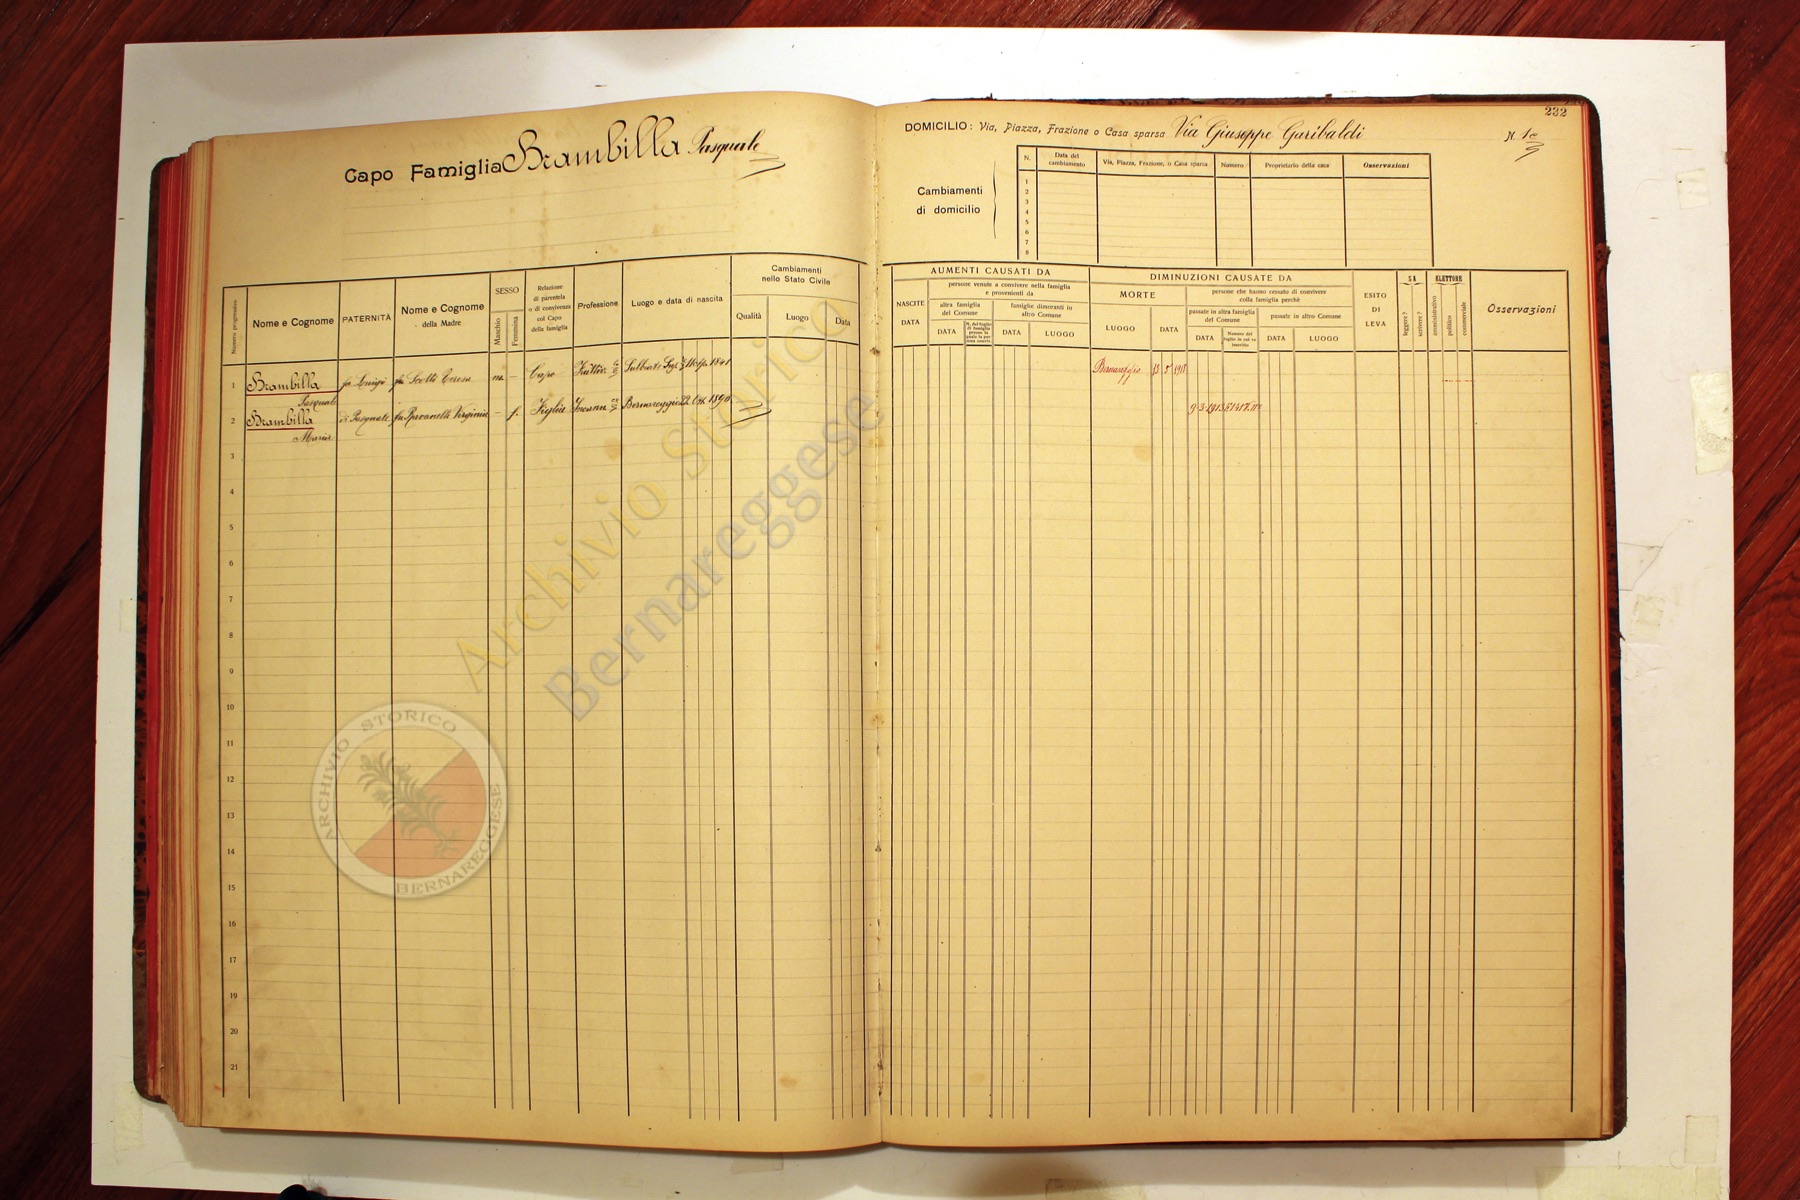 232
Capo Famiglia Brambilla Pasquale
DOMICILIO: Via, Piazza, Frazione o Casa sparsa Via Giuseppe Garibaldi N.
Cambiamenti
di domicilio
N. Data del cambiamento Via, Piazza, Frazione, o Casa sparsa Numero Proprietario della casa Osservazioni
1
2
3
4
5
6
7
8
Numero progressivo
Nome e Cognome
PATERNITÀ
Nome e Cognome
della Madre
SESSO
Maschio
Femmina
Relazione
di parentela
o di convivenza
col Capo
della famiglia
Professione
Luogo e data di nascita
Cambiamenti
nello Stato Civile
Qualità Luogo Data
AUMENTI CAUSATI DA
NASCITE
DATA
persone venute a convivere nella famiglia
e provenienti da
altra famiglia
del Comune
DATA
famiglie dimoranti in
altro Comune
DATA LUOGO
DIMINUZIONI CAUSATE DA
MORTE
LUOGO DATA
persone che hanno cessato di convivere
colla famiglia perchè
passate in altra famiglia
del Comune
DATA
passate in altro Comune
DATA LUOGO
ESITO
DI
LEVA
SA
leggere?
scrivere?
ELETTORE
amministrativo
politico
commerciale
Osservazioni
1 Brambilla fu Luigi fu Scotti Teresa m. – Capo 1841 Bernareggio
Pasquale
2 Brambilla di Pasquale fu Virginia – f. Figlia Bernareggio 22 1890 9-3-1913
Maria
3
4
5
6
7
8
9
10
11
12
13
14
15
16
17
18
19
20
21
Archivio Storico
Bernareggese
ARCHIVIO STORICO
BERNAREGGESE